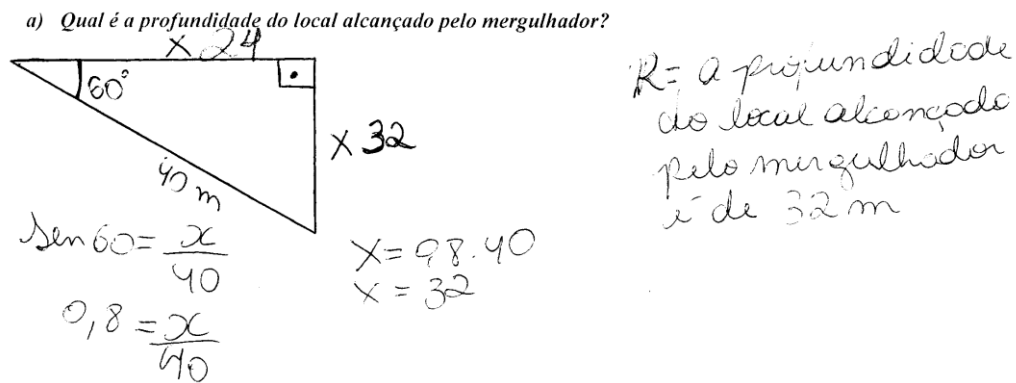 a) Qual é a profundidade do local alcançado pelo mergulhador?
x 24
60°
x 32
40 m
Sen 60 = x/40
0,8 = x/40
x = 0,8 . 40
x = 32
R = a profundidade
do local alcançado
pelo mergulhador
é de 32 m